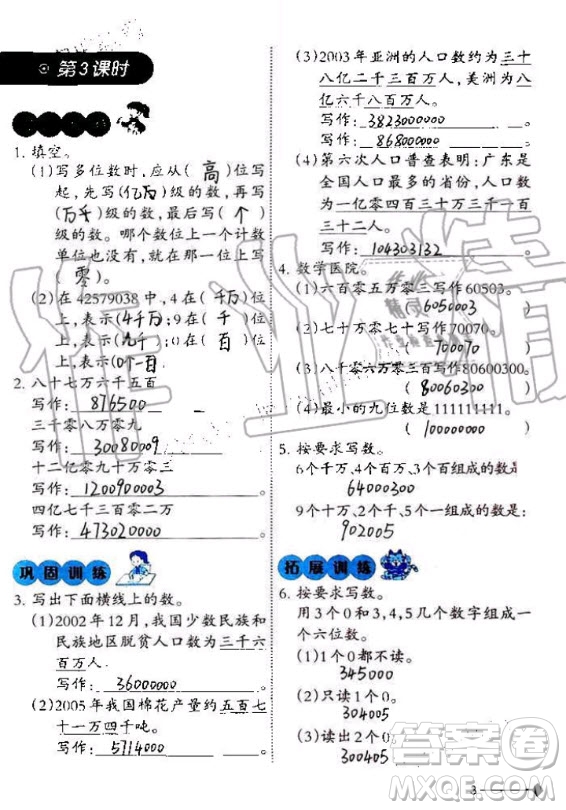 第3课时
1. 填空。
(1)写多位数时,应从(高)位写
起,先写(亿万)级的数,再写
(万千)级的数,最后写(个)
级的数。哪个数位上一个计数
单位也没有,就在那个数位上写
(零)。
(2)在42579038中,4在(千万)位
上,表示(4千万);9在(千)位
上,表示(9千);0在(百)位
上,表示(0个一百)
2. 八十七万六千五百
写作: 876500 。
三千零八万零九
写作: 30080009 。
十二亿零九十万零三
写作: 1200900003 。
四亿七千三百零二万
写作: 473020000 。
巩固训练
3. 写出下面横线上的数。
(1)2002年12月,我国少数民族和
民族地区脱贫人口数为三千六
百万人.
写作: 36000000 。
(2)2005年我国棉花产量约五百七
十一万四千吨。
写作: 5714000 。
(3)2003年亚洲的人口数约为三十
八亿二千三百万人,美洲为八
亿六千八百万人。
写作: 3823000000 。
写作: 868000000 。
(4)第六次人口普查表明:广东是
全国人口最多的省份,人口数
为一亿零四百三十万三千一百
三十二人。
写作: 104303132 。
4. 数学医院。
(1)六百零五万零三写作60503。
( 6050003 )
(2)七十万零七十写作70070。
( 700070 )
(3)八千零六万零三百写作80600300。
( 80060300 )
(4)最小的九位数是111111111。
( 100000000 )
5. 按要求写数。
6个千万、4个百万、3个百组成的数是
64000300
9个十万、2个千、5个一组成的数是:
902005
拓展训练
6. 按要求写数。
用3个0和3,4,5几个数字组成一
个六位数。
(1)1个0都不读。
345000
(2)只读1个0。
304500
(3)读出2个0。
300405
3
作业精灵
答案圈
MXQE.COM